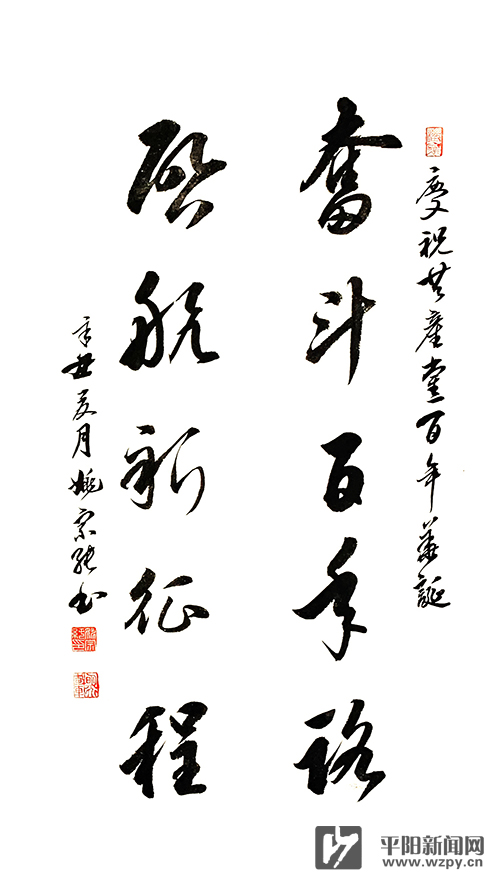 慶祝共產党百年華誕
奮斗百年路
启航新征程
辛丑夏月姚宗能书
平阳新闻网
www.wzpy.cn